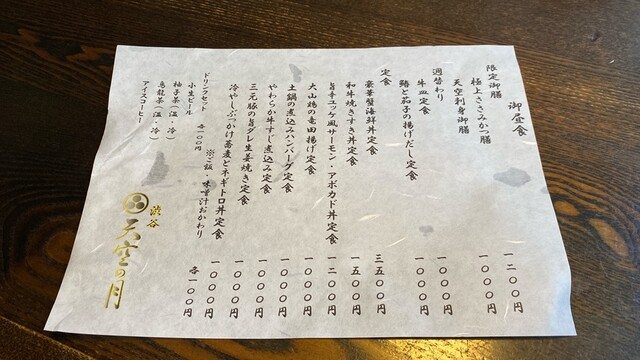 御昼食
限定御膳
極上ささみかつ膳 一二〇〇円
天空刺身御膳 一〇〇〇円
週替わり
牛皿定食 一〇〇〇円
鶏と茄子の揚げだし定食 一〇〇〇円
定食
豪華蟹海鮮丼定食 三五〇〇円
和牛焼きすき丼定食 一五〇〇円
旨辛ユッケ風サーモン・アボカド丼定食 一二〇〇円
大山鶏の竜田揚げ定食 一〇〇〇円
土鍋の煮込みハンバーグ定食 一〇〇〇円
やわらか牛すじ煮込み定食 一〇〇〇円
三元豚の旨ダレ生姜焼き定食 一〇〇〇円
冷やしぶっかけ蕎麦とネギトロ丼定食 一〇〇〇円
※ご飯・味噌汁おかわり 各一〇〇円
ドリンクセット 各一〇〇円
小生ビール
柚子茶(温・冷)
烏龍茶(温・冷)
アイスコーヒー
渋谷
天空の月